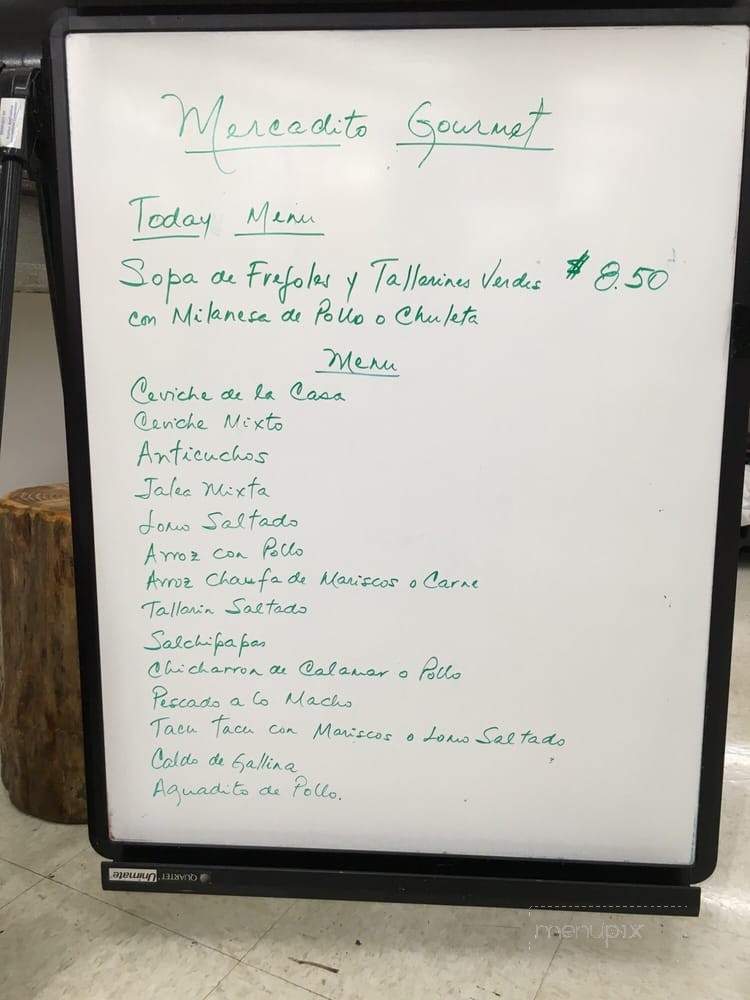 Mercadito Gourmet
Today Menu
Sopa de Frejoles y Tallarines Verdes $ 8.50
con Milanesa de Pollo o Chuleta
Menu
Ceviche de la Casa
Ceviche Mixto
Anticuchos
Jalea Mixta
Lomo Saltado
Arroz con Pollo
Arroz Chaufa de Mariscos o Carne
Tallarin Saltado
Salchipapas
Chicharron de Calamar o Pollo
Pescado a lo Macho
Tacu Tacu con Mariscos o Lomo Saltado
Caldo de Gallina
Aguadito de Pollo.
QUARTET Unimate
menupix